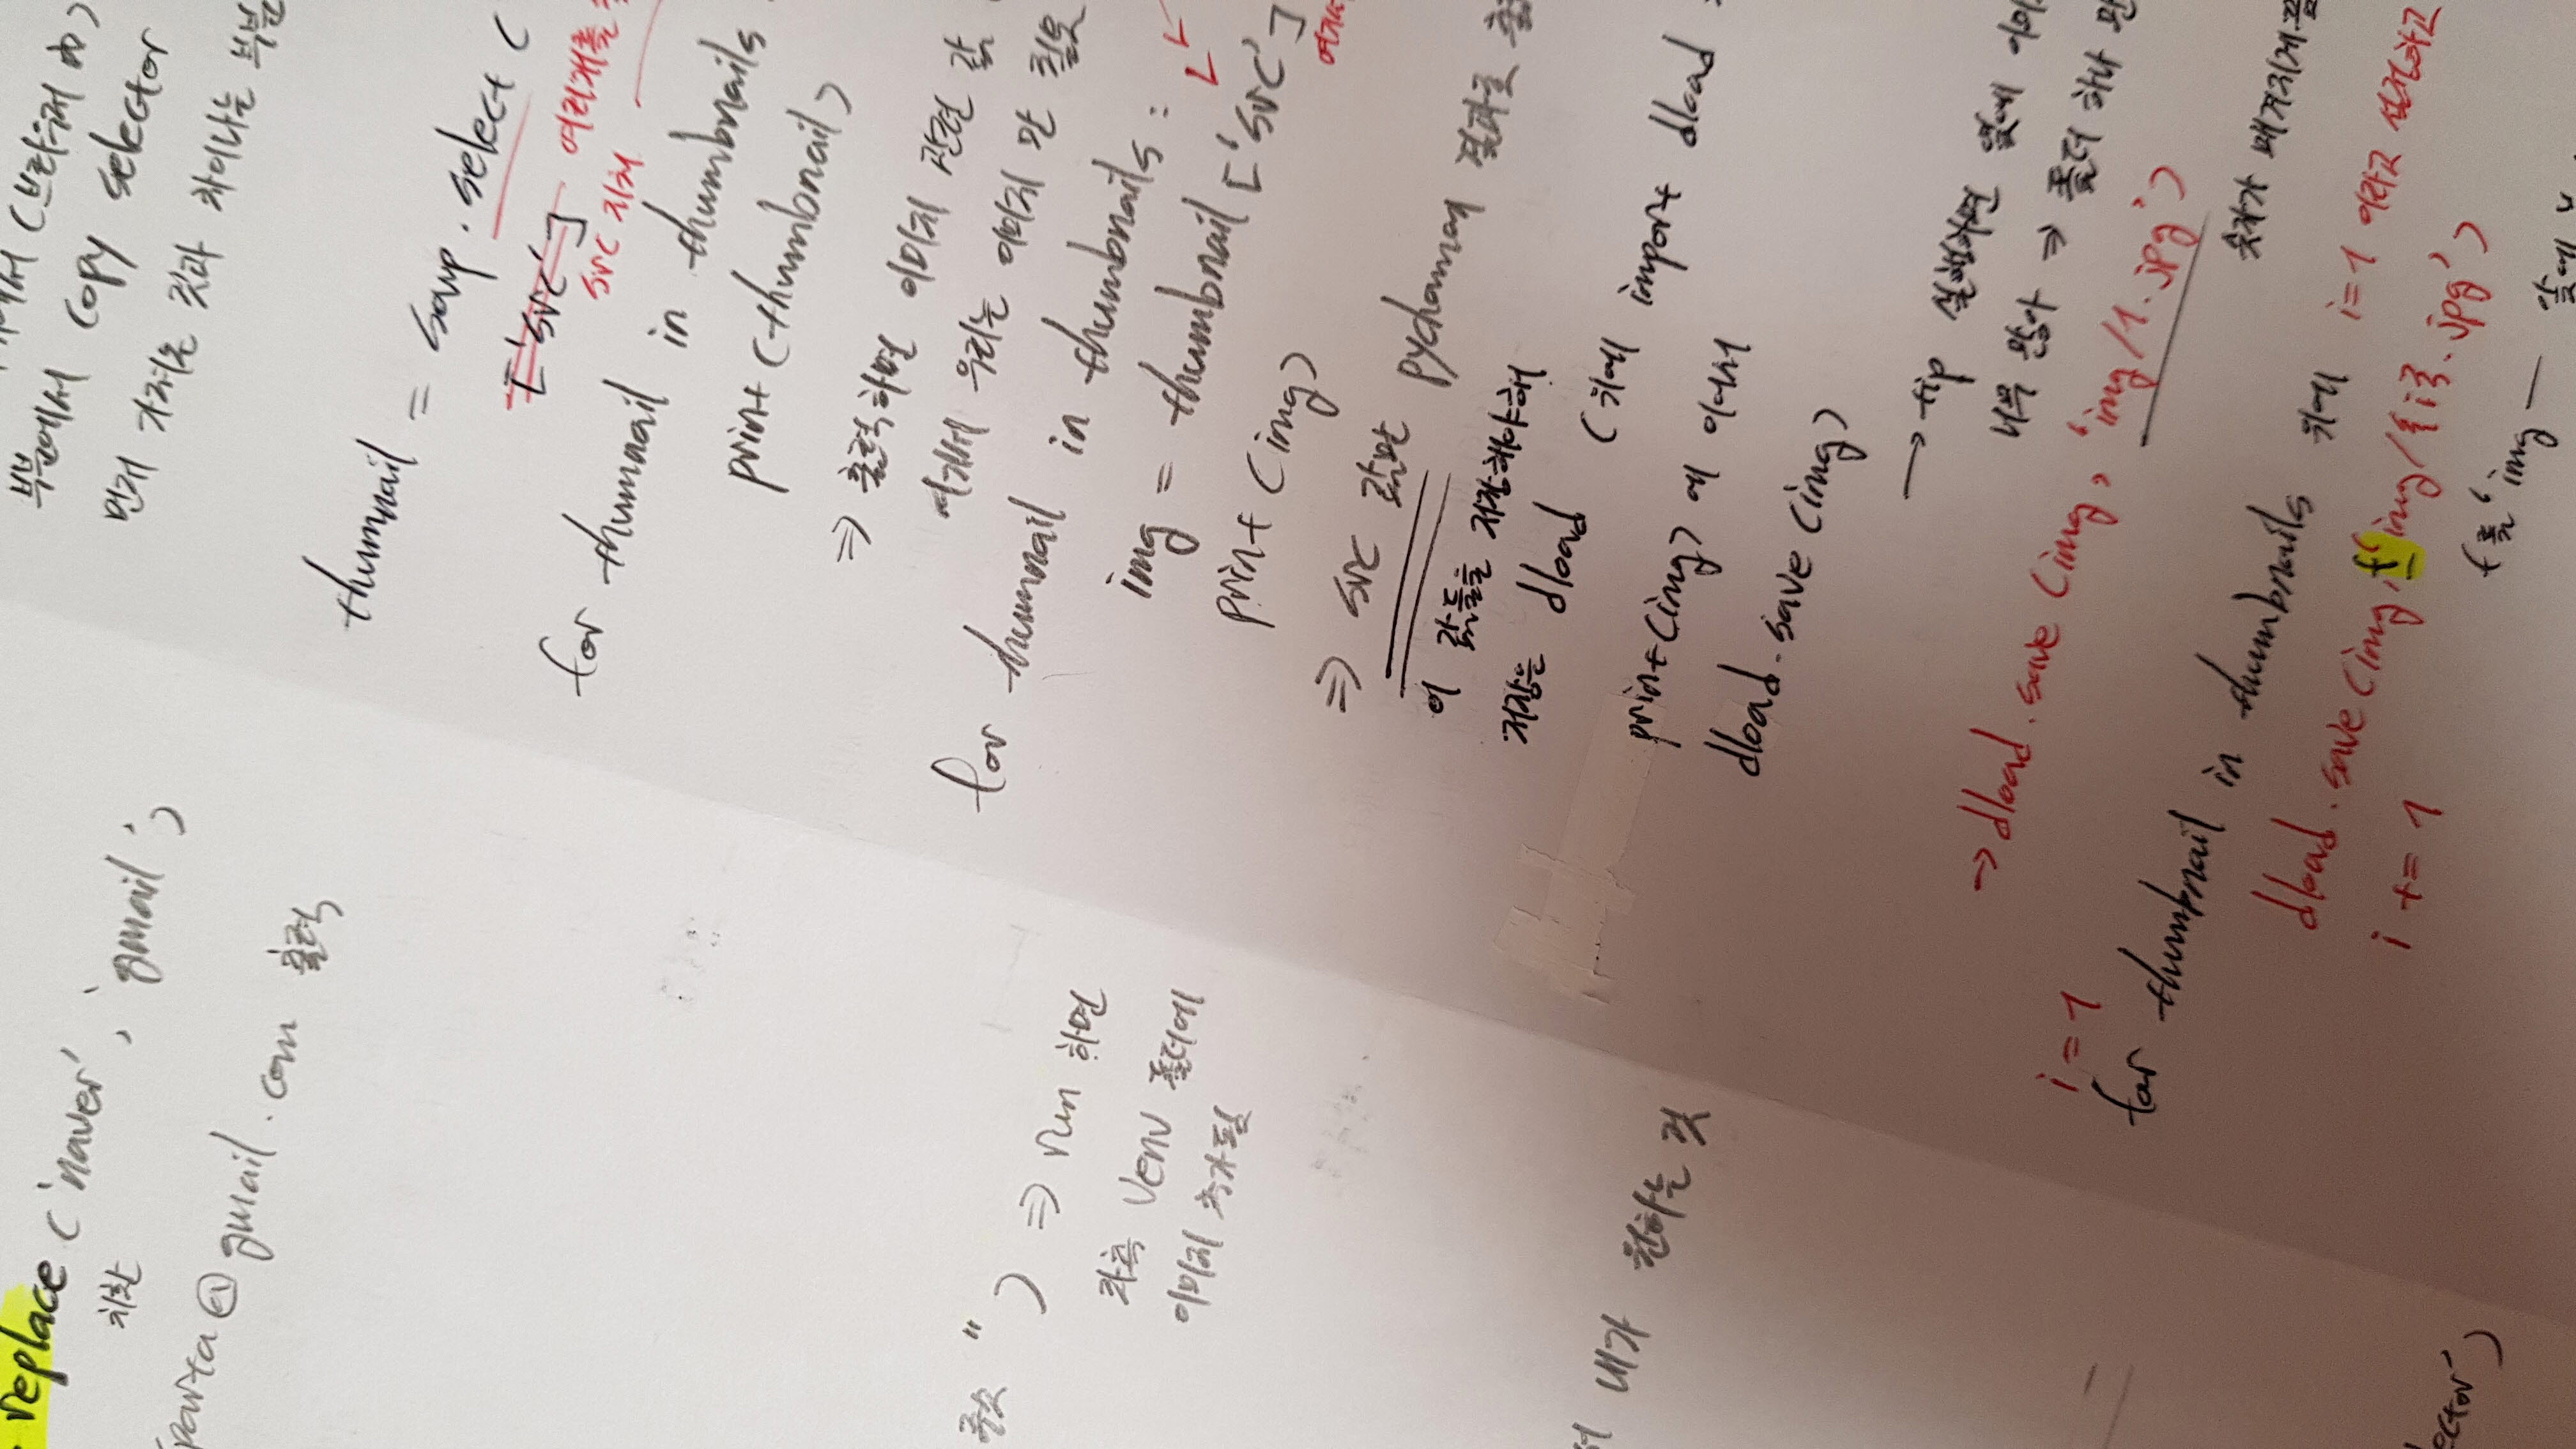 replace ('naver', 'gmail')
치환
@gmail.com 출력
") ⇒ run 하면
좌측 Venv 폴더에
이미지 추가됨
내가 원하는 것
부분에서 copy selector
먼저 가져온 것과 차이나는 부분
thumnail = soup.select (
['src'] 여러개를
src 지워
for thumnail in thumbnails
print (thumbnail)
⇒ 출력하면 이미지 관련 값
여기서 우리는 이미지 만 필요
for thumnail in thumbnails :
img = thumbnail ['src']
print (img)
⇒ src 값만 pycharm 결과로
이 값들을 저장해야해
저장은 dload (위에 import dload
print (img) 에 이어서
dload.save (img)
→ tip 실행하면 옆에
너무 많아 ⇒ 폴더 하나
→ dload.save (img, 'img/1.jpg')
숫자가 매겨지게끔
i=1
for thumbnail in thumbnails 위에 i=1 이라고 설정하고
dload.save (img, f'img/{i}.jpg')
i += 1
f 'img — 앞에